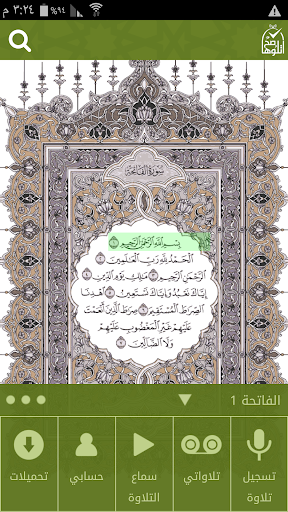 ٩٤% ٣:٢٤ م
سورة الفاتحة
بِسْمِ ٱللَّهِ ٱلرَّحْمَٰنِ ٱلرَّحِيمِ ١
ٱلْحَمْدُ لِلَّهِ رَبِّ ٱلْعَٰلَمِينَ ٢
ٱلرَّحْمَٰنِ ٱلرَّحِيمِ ٣ مَٰلِكِ يَوْمِ ٱلدِّينِ ٤
إِيَّاكَ نَعْبُدُ وَإِيَّاكَ نَسْتَعِينُ ٥ ٱهْدِنَا
ٱلصِّرَٰطَ ٱلْمُسْتَقِيمَ ٦ صِرَٰطَ ٱلَّذِينَ أَنْعَمْتَ
عَلَيْهِمْ غَيْرِ ٱلْمَغْضُوبِ عَلَيْهِمْ
وَلَا ٱلضَّآلِّينَ ٧
الفاتحة 1
تسجيل تلاوة
تلاواتي
سماع التلاوة
حسابي
تحميلات